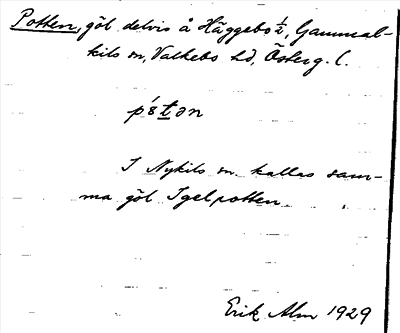 Potten, göl delvis å Häggebo ½, Gammal-
kils sn, Valkebo hd, Österg. l.
pɵ́tən
I Nykils sn kallas sam-
ma göl Igelpotten.
Erik Alm 1929